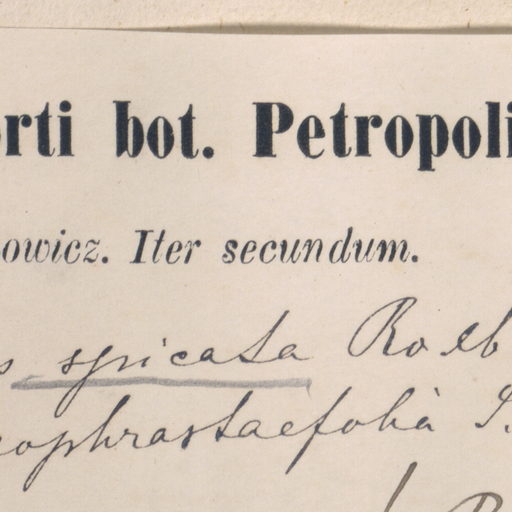 orti bot. Petropoli
owicz. Iter secundum.
s spicata Roxb
eophrastaefolia